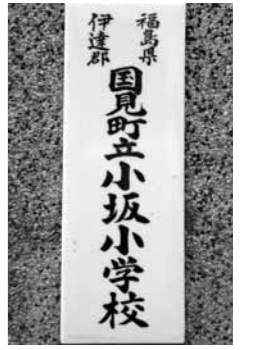 福島県
伊達郡
国見町立小坂小学校